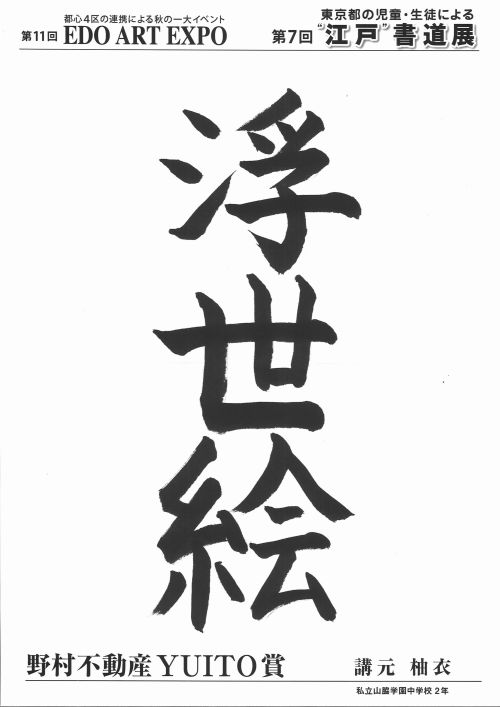 都心4区の連携による秋の一大イベント
第11回 EDO ART EXPO
東京都の児童・生徒による
第7回 “江戸”書道展
浮世絵
野村不動産YUITO賞
講元 柚衣
私立山脇学園中学校 2年